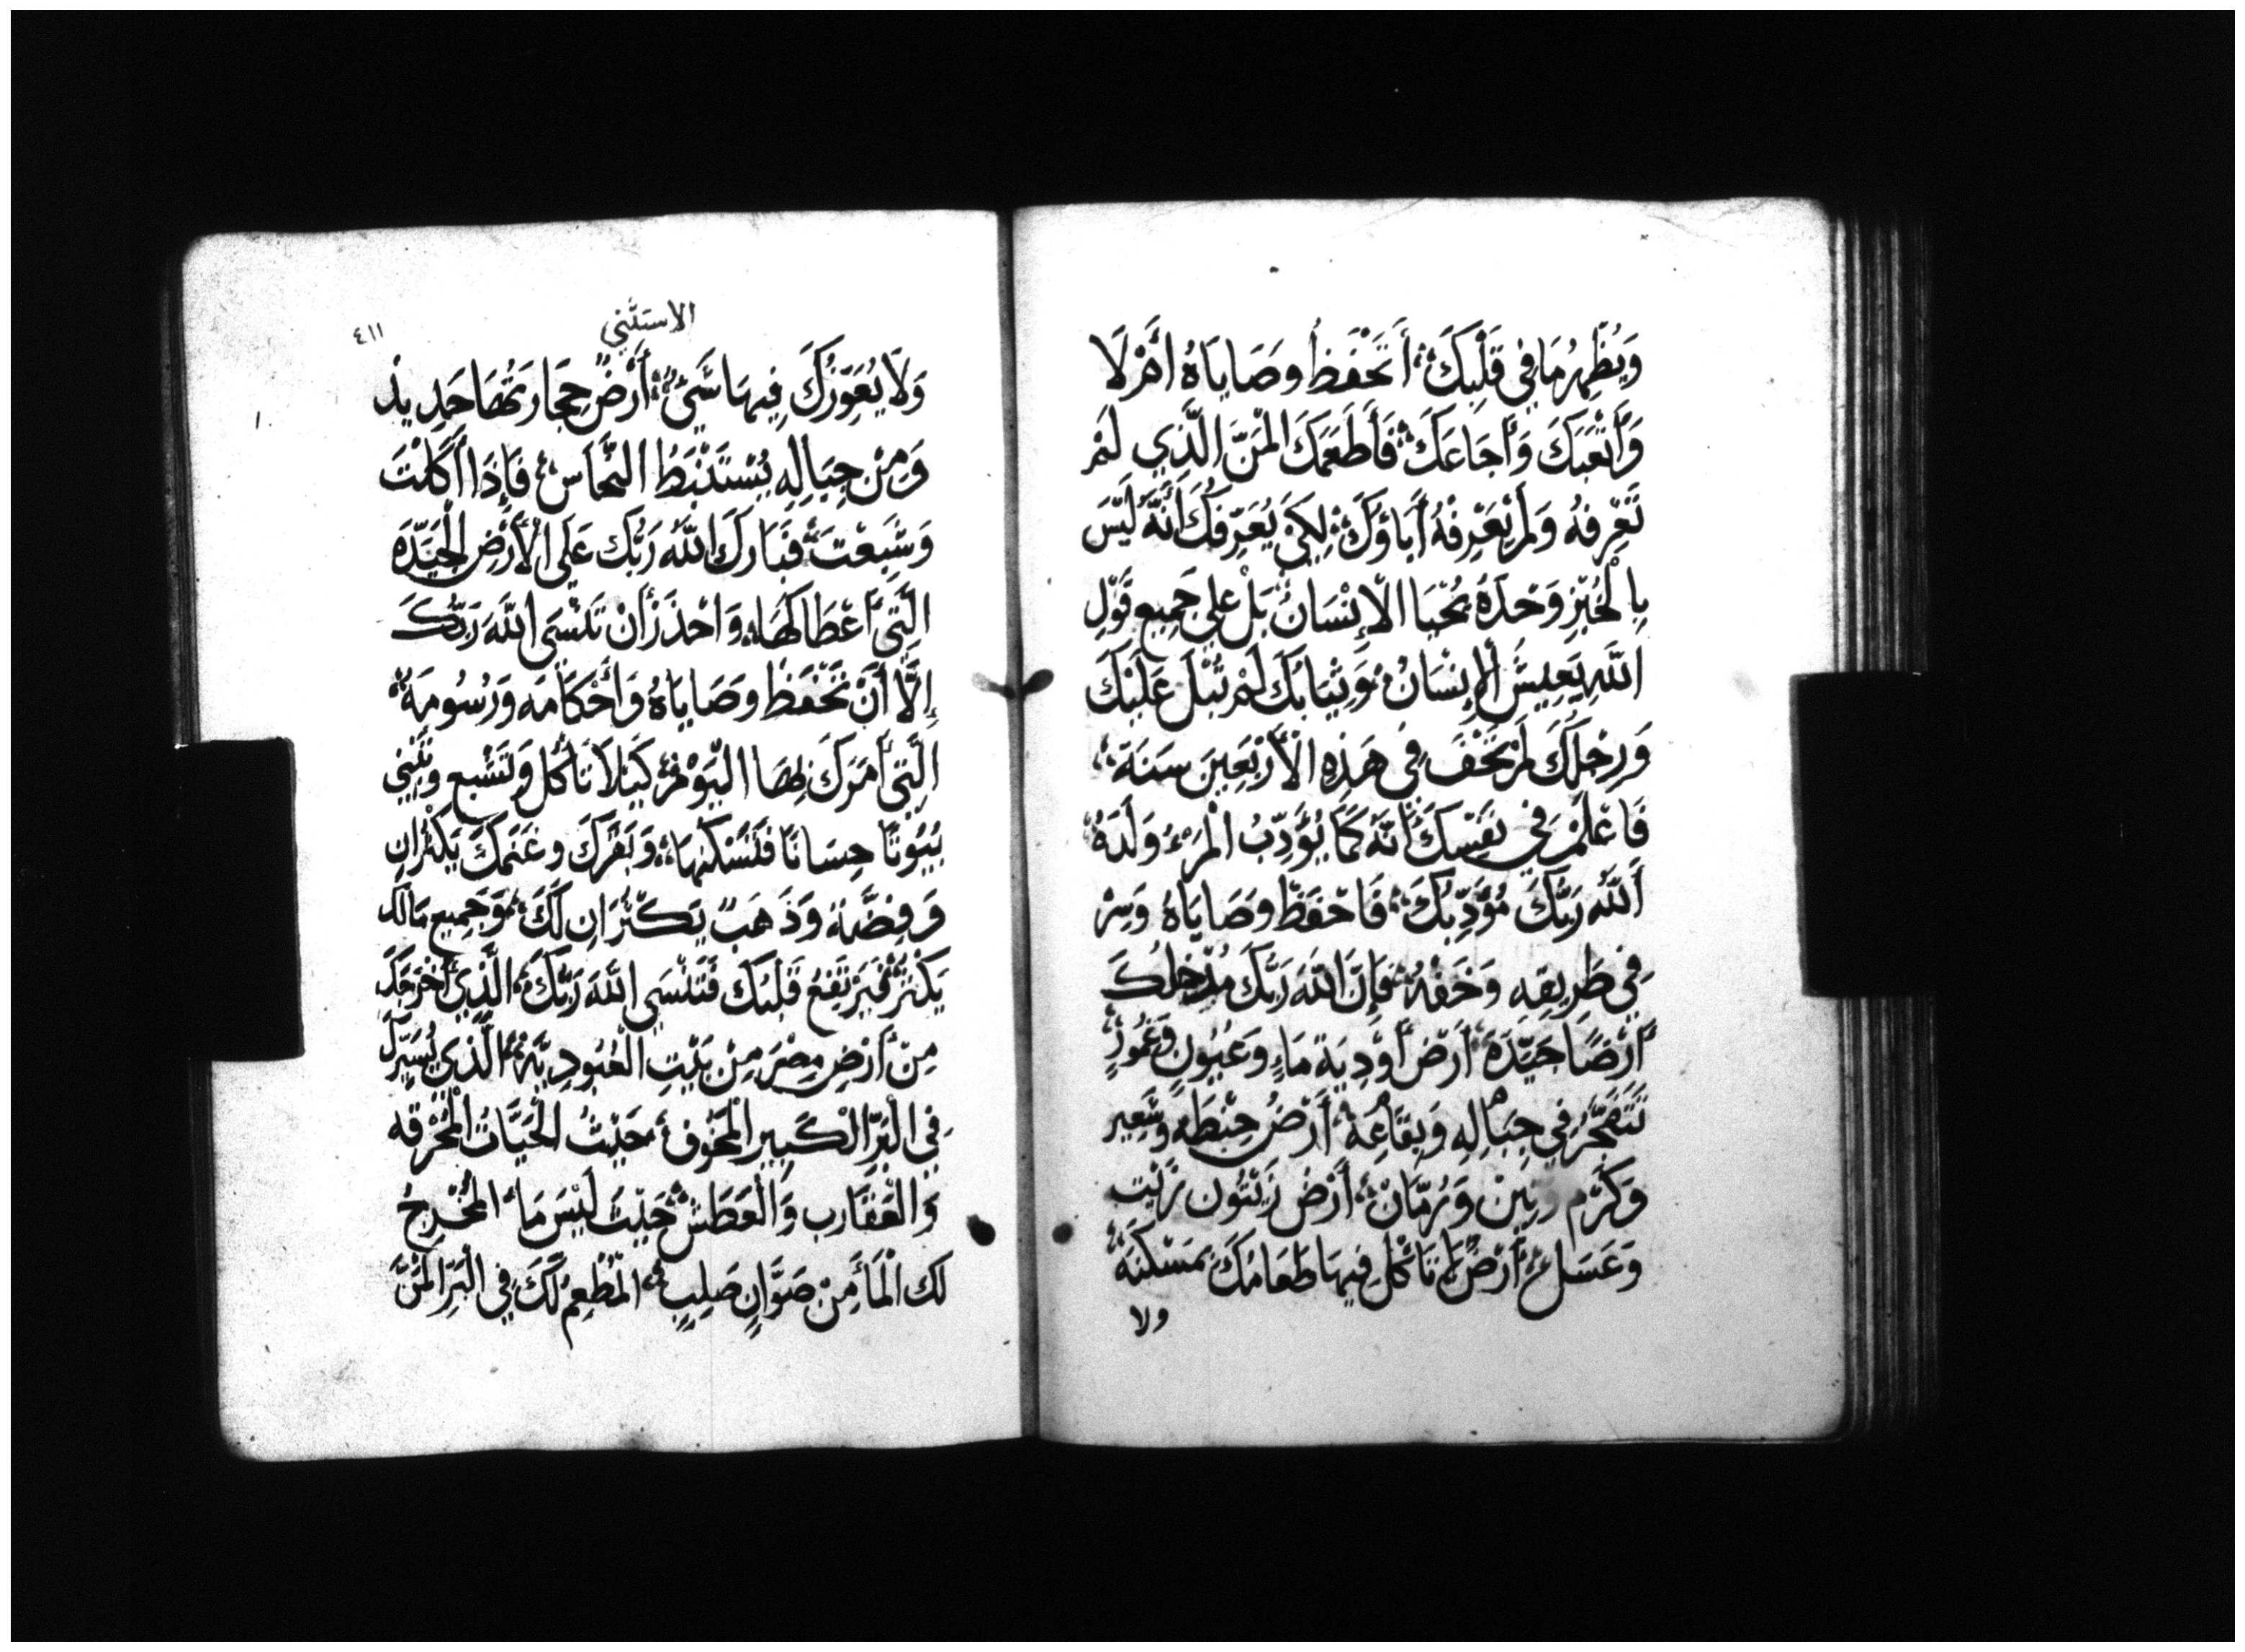 وَيُظْهِرُ مَا فِي قَلْبِكَ أَتَحْفَظُ وصَايَاهُ أَمْ لَا
وَأَتْعَبَكَ وَأَجَاعَكَ فَأَطْعَمَكَ المَنَّ الَّذِي لَمْ
تَعْرِفهُ وَلَمْ يَعْرِفهُ أَبَاؤكَ لِكَيْ يُعَرِّفَكَ أَنَّهُ لَيْسَ
بِالْخُبْزِ وَحْدَهُ يَحْيَا الْإِنْسَانُ بَلْ عَلى جَمِيعِ قَوْلِ
اللَّهِ يَعِيشُ الْإِنْسَانُ وَثِيَابُكَ لَمْ تُبْلَ عَلَيْكَ
وَرِجْلَكَ لَمْ تَحْفَ فِي هَذِهِ الْأَرْبَعِينَ سَنَةً
فَاعْلَمْ فِي نَفْسِكَ أَنَّهُ كَمَا يُؤَدِّبُ الْمَرْءُ وَلَدَهُ
أَللَّهُ رَبُّكَ مُؤَدِّبُكَ فَاحْفَظْ وصَايَاهُ وَسِرْ
فِي طَرِيقِهِ وَخَفْهُ فَإِنَّ اللَّهَ رَبَّكَ مُدْخِلُكَ
أَرْضًا جَيِّدَةً أَرْضَ أَوْدِيَةِ مَاءٍ وَعُيُونٍ وَغُمُورٍ
تَتَفَجَّرُ فِي جِبَالِهِ وَبِقَاعِهِ أَرْضُ حِنْطَةٍ وَشَعِير
وَكَرْم وَتِينْ وَرُمَّانْ أَرْضُ زَيْتُون زَيْت
وَعَسَل أَرْضٌ لَمْ تَأْكُل فِيهَا طَعَامُكَ بمَسْكَنَةٍ
ولا
الاستثني
٤١١
وَلَا يُعَوِّزُكَ فِيهَا شَيْءٌ أَرْضٌ حِجَارَتُهَا حَدِيدْ
وَمِنْ جِبَالِهِ يُسْتَنْبَطُ النُّحَاسُ فَإِذَا أَكَلْتَ
وَشَبِعْتَ فَبَارَكَ اللَّهَ رَبُّكَ عَلَى الْأَرْضِ الْجَيِّدَةِ
الَّتِي أَعْطَاكَهَا وَاحْذَرْ أَنْ تَنْسَى اللَّهَ رَبُّكَ
إِلَّا أَنْ تَحْفَظْ وصَايَاهُ وَأَحْكَامَه وَرُسُومَه
الَّتِي أَمَرَكَ بِهَا الْيَوْمَ كَيْلَا تَأْكُل وَتَشْبع وتَبْنِي
بُيُوتًا حِسَانًا فَتَسْكُنهَا وَبَقَرُكَ وغَنَمَكَ يَكْثُرانِ
وَفِضَّة وَذَهَبٌ يَكْثُرَانِ لَكَ وَجَمِيع مَا لَكَ
يَكْثُرُ فَيَرْتَفِعُ قَلْبُكَ فَتَنْسَى اللَّهَ رَبَّكَ الَّذِي أَخْرَجَكَ
مِنْ أَرْضِ مِصْرَ مِنْ بَيْتِ الْعُبُودِيَّةِ الَّذِي يُسَيِّرُكَ
فِي الْبَرِّ الْكَبِيرِ الْمَخُوفِ حَيْثُ الْحَيَّاتُ الْمُحْرِقَه
وَالْعَقَارب وَالْعَطَش حَيْثُ لَيْسَ مَاء الْمُخْرِجُ
لك الْمَاءَ مِنْ صَوَّانٍ صَلِبٍ المُطْعِمُ لَكَ فِي البَرِّ المَنَّ